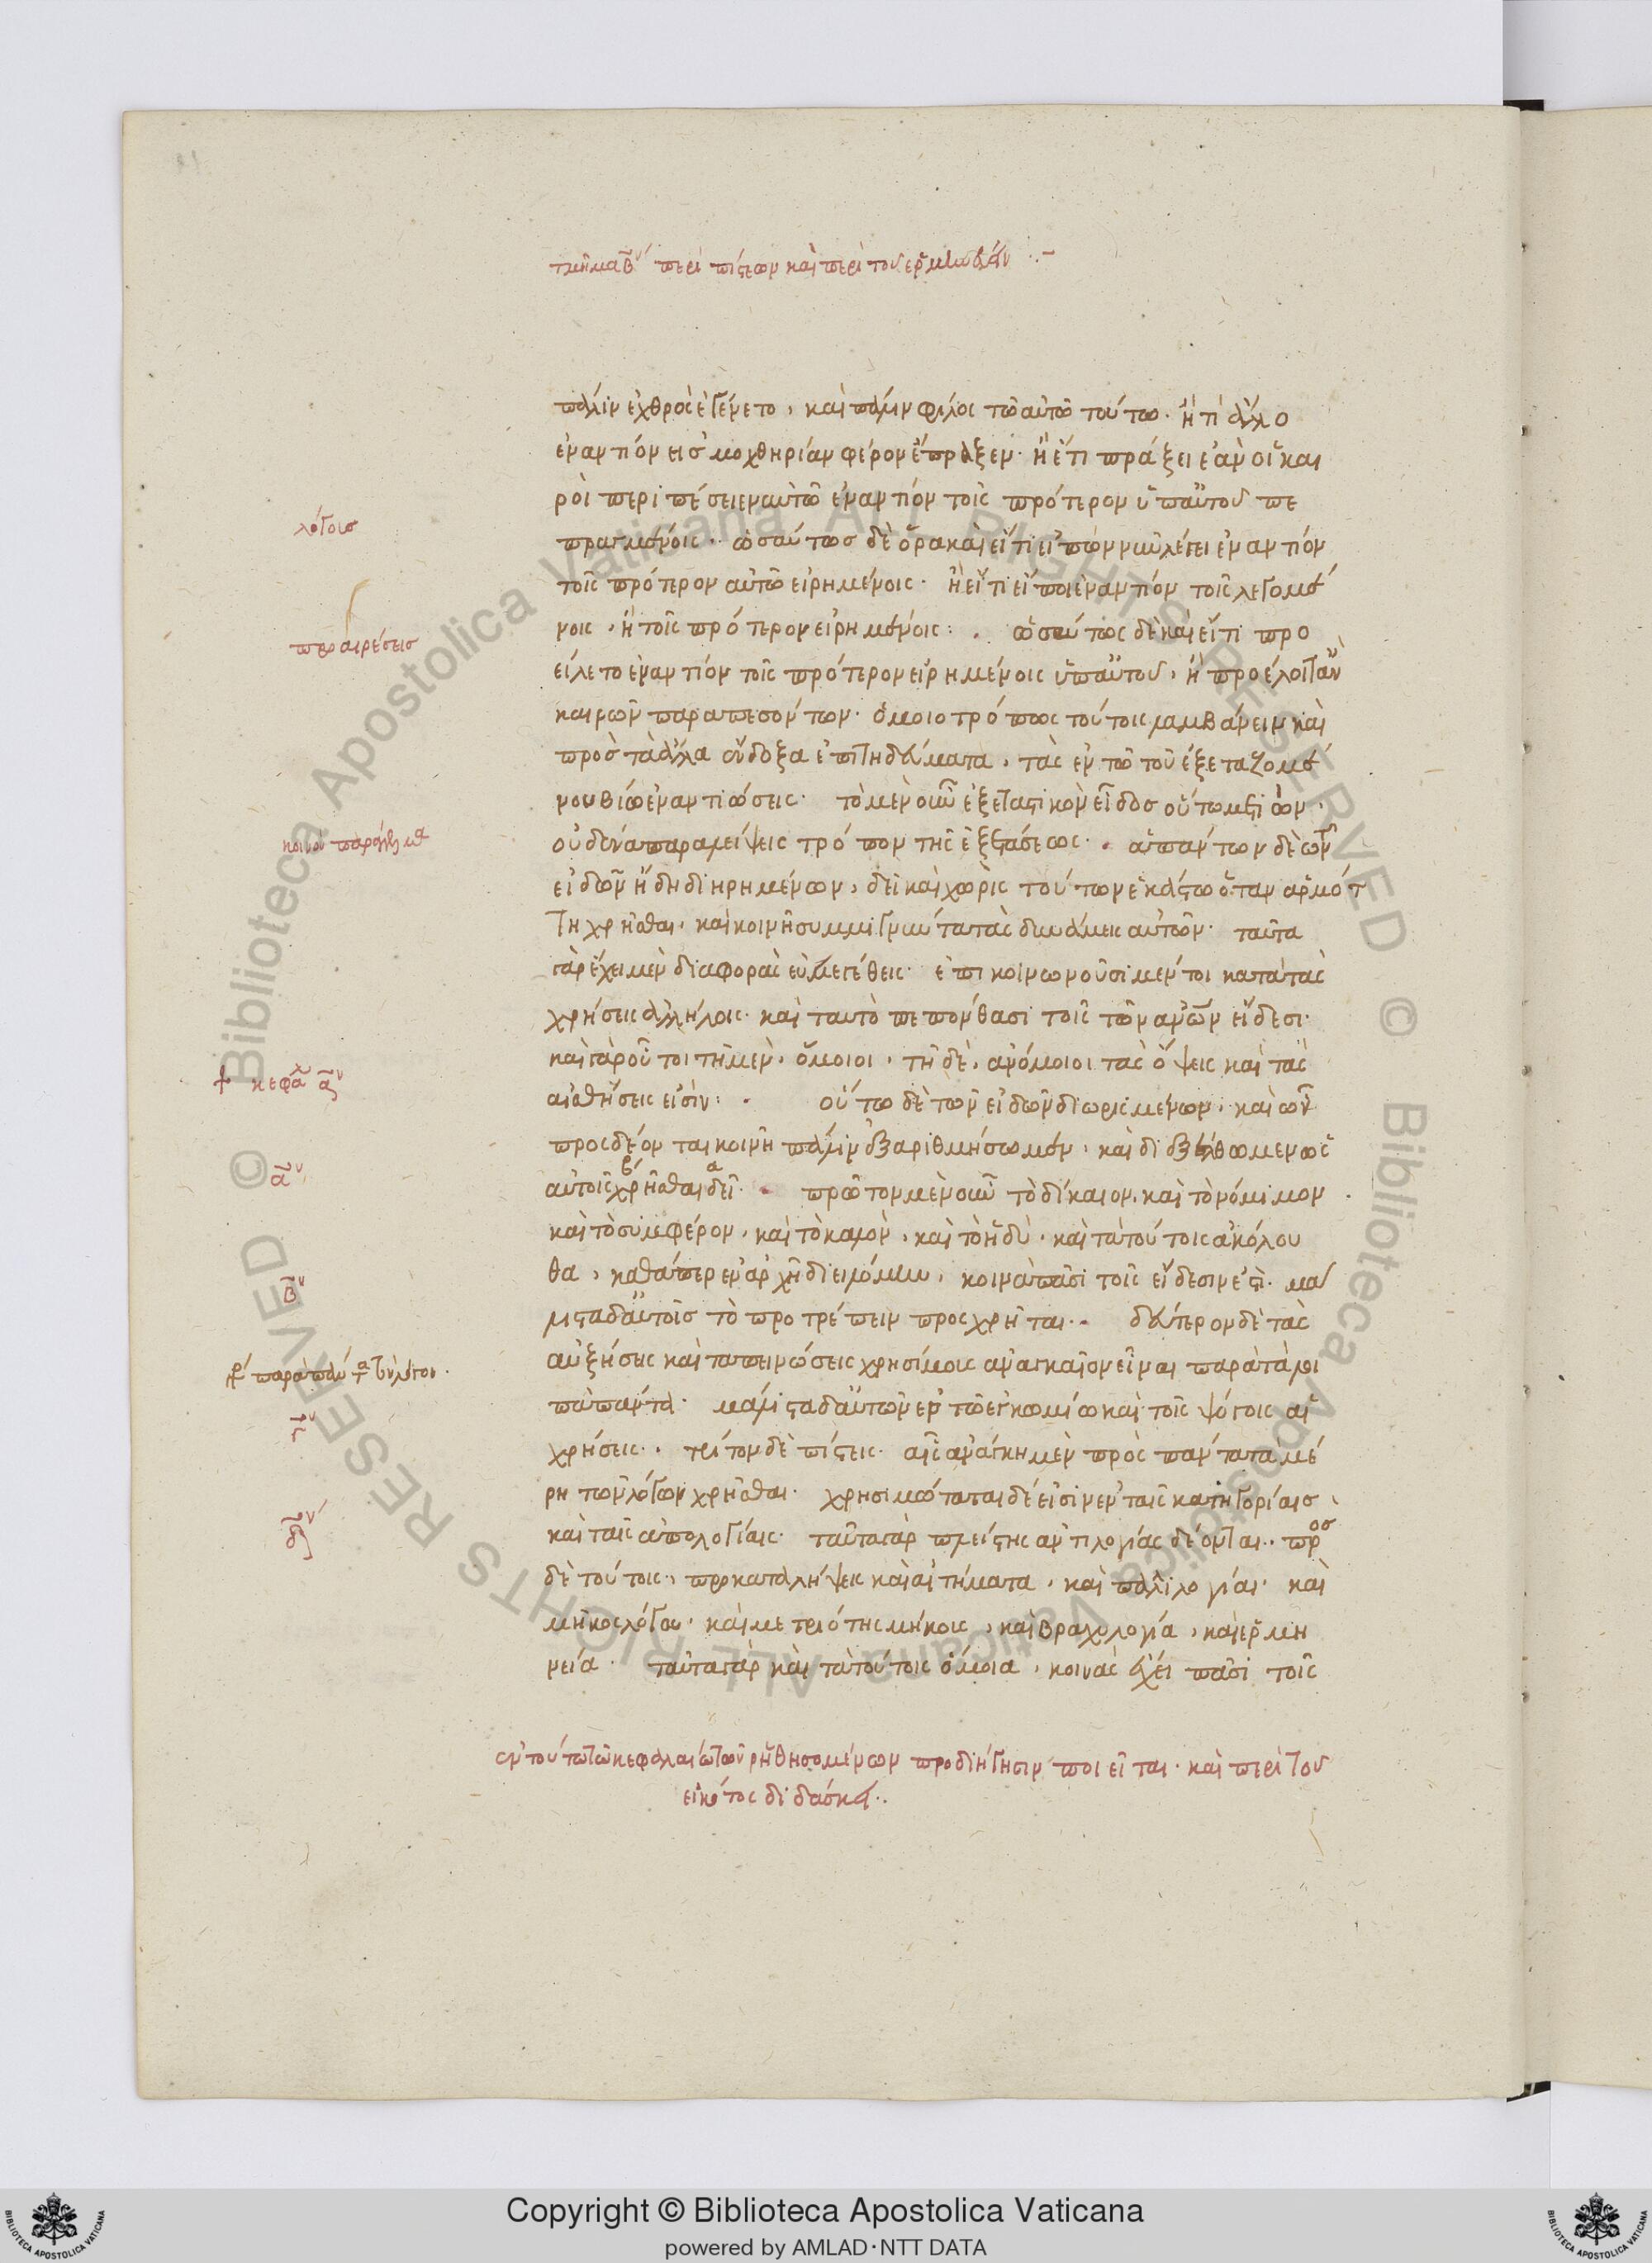 τμῆμα β̅ον περὶ πίστεων καὶ περὶ τοῦ ἑρμηνεύειν
πάλιν ἐχθρὸς ἐγένετο, καὶ πάλιν φίλος τῶ αὐτῶ τούτω. ἢ τι ἄλλο
ἐναντίον εἰς μοχθηρίαν φέρον ἔπραξεν. ἢ ἔτι πράξει ἐὰν οἱ και
ροὶ περιπέσειεν αὐτῶ ἐναντίον τοῖς πρότερον ὑπ' αὐτοῦ πε
λόγοις
πραγμένοις. ὡσαύτως δὲ ὅρα καὶ εἴ τι εἰπὼν νῦν λέγει ἐναντίον
τοῖς πρότερον αὐτῶ εἰρημένοις. ἢ εἴ τι εἴποι ἐναντίον τοῖς λεγομέ
προαιρέσεις
νοις, ἢ τοῖς πρότερον εἰρημένοις: ὡσαύτως δὲ καὶ εἴ τι προ
είλετο ἐναντίον τοῖς πρότερον εἰρημένοις ὑπ' αὐτοῦ, ἢ προέλοιτ' ἂν
καιρῶν παραπεσόντων. ὁμοιοτρόπως τούτοις λαμβάνειν καὶ
πρὸς τὰ ἄλλα ἔνδοξα ἐπιτηδεύματα, τὰς ἐν τῶ τοῦ ἐξεταζομέ
νου βίω ἐναντιώσεις. τὸ μὲν οὖν ἐξεταστικὸν εἶδος οὕτω μετιὼν
κοινὸν παράγγελμα
οὐδένα παραλείψεις τρόπον τῆς ἐξετάσεως. ἁπάντων δὲ ὧν
εἰδῶν ἤδη διηρημένων, δεῖ καὶ χωρὶς τούτων ἑκάστω ὅταν ἁρμότ
τη χρῆσθαι, καὶ κοινῆ συμμιγνύντα τὰς δυνάμεις αὐτῶν. ταῦτα
γὰρ ἔχει μὲν διαφορὰς εὐμεγέθεις. ἐπικοινωνοῦσι μέντοι κατὰ τὰς
χρήσεις ἀλλήλοις. καὶ ταυτὸ πεπόνθασι τοῖς τῶν ἀνῶν εἴδεσι.
καὶ γὰρ οὗτοι τῆ μὲν, ὅμοιοι, τῆ δὲ, ἀνόμοιοι τὰς ὄψεις καὶ τὰς
κεφάλ α̅ον
αἰσθήσεις εἰσίν: οὕτω δὲ τῶν εἰδῶν διωρισμένων, καὶ ὧν
προσδέονται κοινῆ πάλιν ἐξαριθμήσωμεν, καὶ διεξέλθωμεν ὡς
α̅ον
αὐτοῖς χρῆσθαι δεῖ. πρῶτον μὲν οὖν τὸ δίκαιον, καὶ τὸ νόμιμον
καὶ τὸ συμφέρον, καὶ τὸ καλὸν, καὶ τὸ ἡδὺ, καὶ τὰ τούτοις ἀκόλου
β̅ον
θα, καθάπερ ἐν ἀρχῆ διειλόμην, κοινὰ πᾶσι τοῖς εἴδεσιν ἐστί. μά
λιστα δ' αὐτοῖς τὸ προτρέπειν προσχρῆται. δεύτερον δὲ τὰς
αὐξήσεις καὶ ταπεινώσεις χρησίμους ἀναγκαῖον εἶναι παρὰ τὰ λοι
πὰ πάντα. μάλιστα δ' αὐτῶν ἐν τῶ ἐγκωμίω καὶ τοῖς ψόγοις αἱ
γ̅ον
χρήσεις. τρίτον δὲ πίστεις. αἷς ἀνάγκη μὲν πρὸς πάντα τὰ μέ
ρη τῶν λόγων χρῆσθαι. χρησιμώταται δέ εἰσιν ἐν ταῖς κατηγορίαις
δ̅ον
καὶ ταῖς ἀπολογίαις. ταῦτα γὰρ πλείστης ἀντιλογίας δέονται. πρὸς
δὲ τούτοις, προκαταλήψεις καὶ αἰτήματα, καὶ παλιλογίαι, καὶ
μῆκος λόγου, καὶ μετριότης μήκους, καὶ βραχυλογία, καὶ ἑρμη
νεία. ταῦτα γὰρ καὶ τὰ τούτοις ὅμοια, κοινὰς ἔχει πᾶσι τοῖς
ἐν τούτω τῶ κεφαλαίω τῶν ῥηθησομένων προδιήγησιν ποιεῖται. καὶ περὶ τοῦ
εἰκότος διδάσκει.
© Biblioteca Apostolica Vaticana ALL RIGHTS RESERVED
Copyright © Biblioteca Apostolica Vaticana
powered by AMLAD·NTT DATA
BIBLIOTECA APOSTOLICA VATICANA